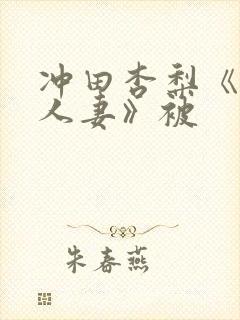 冲田杏梨《
人妻》被
朱春燕